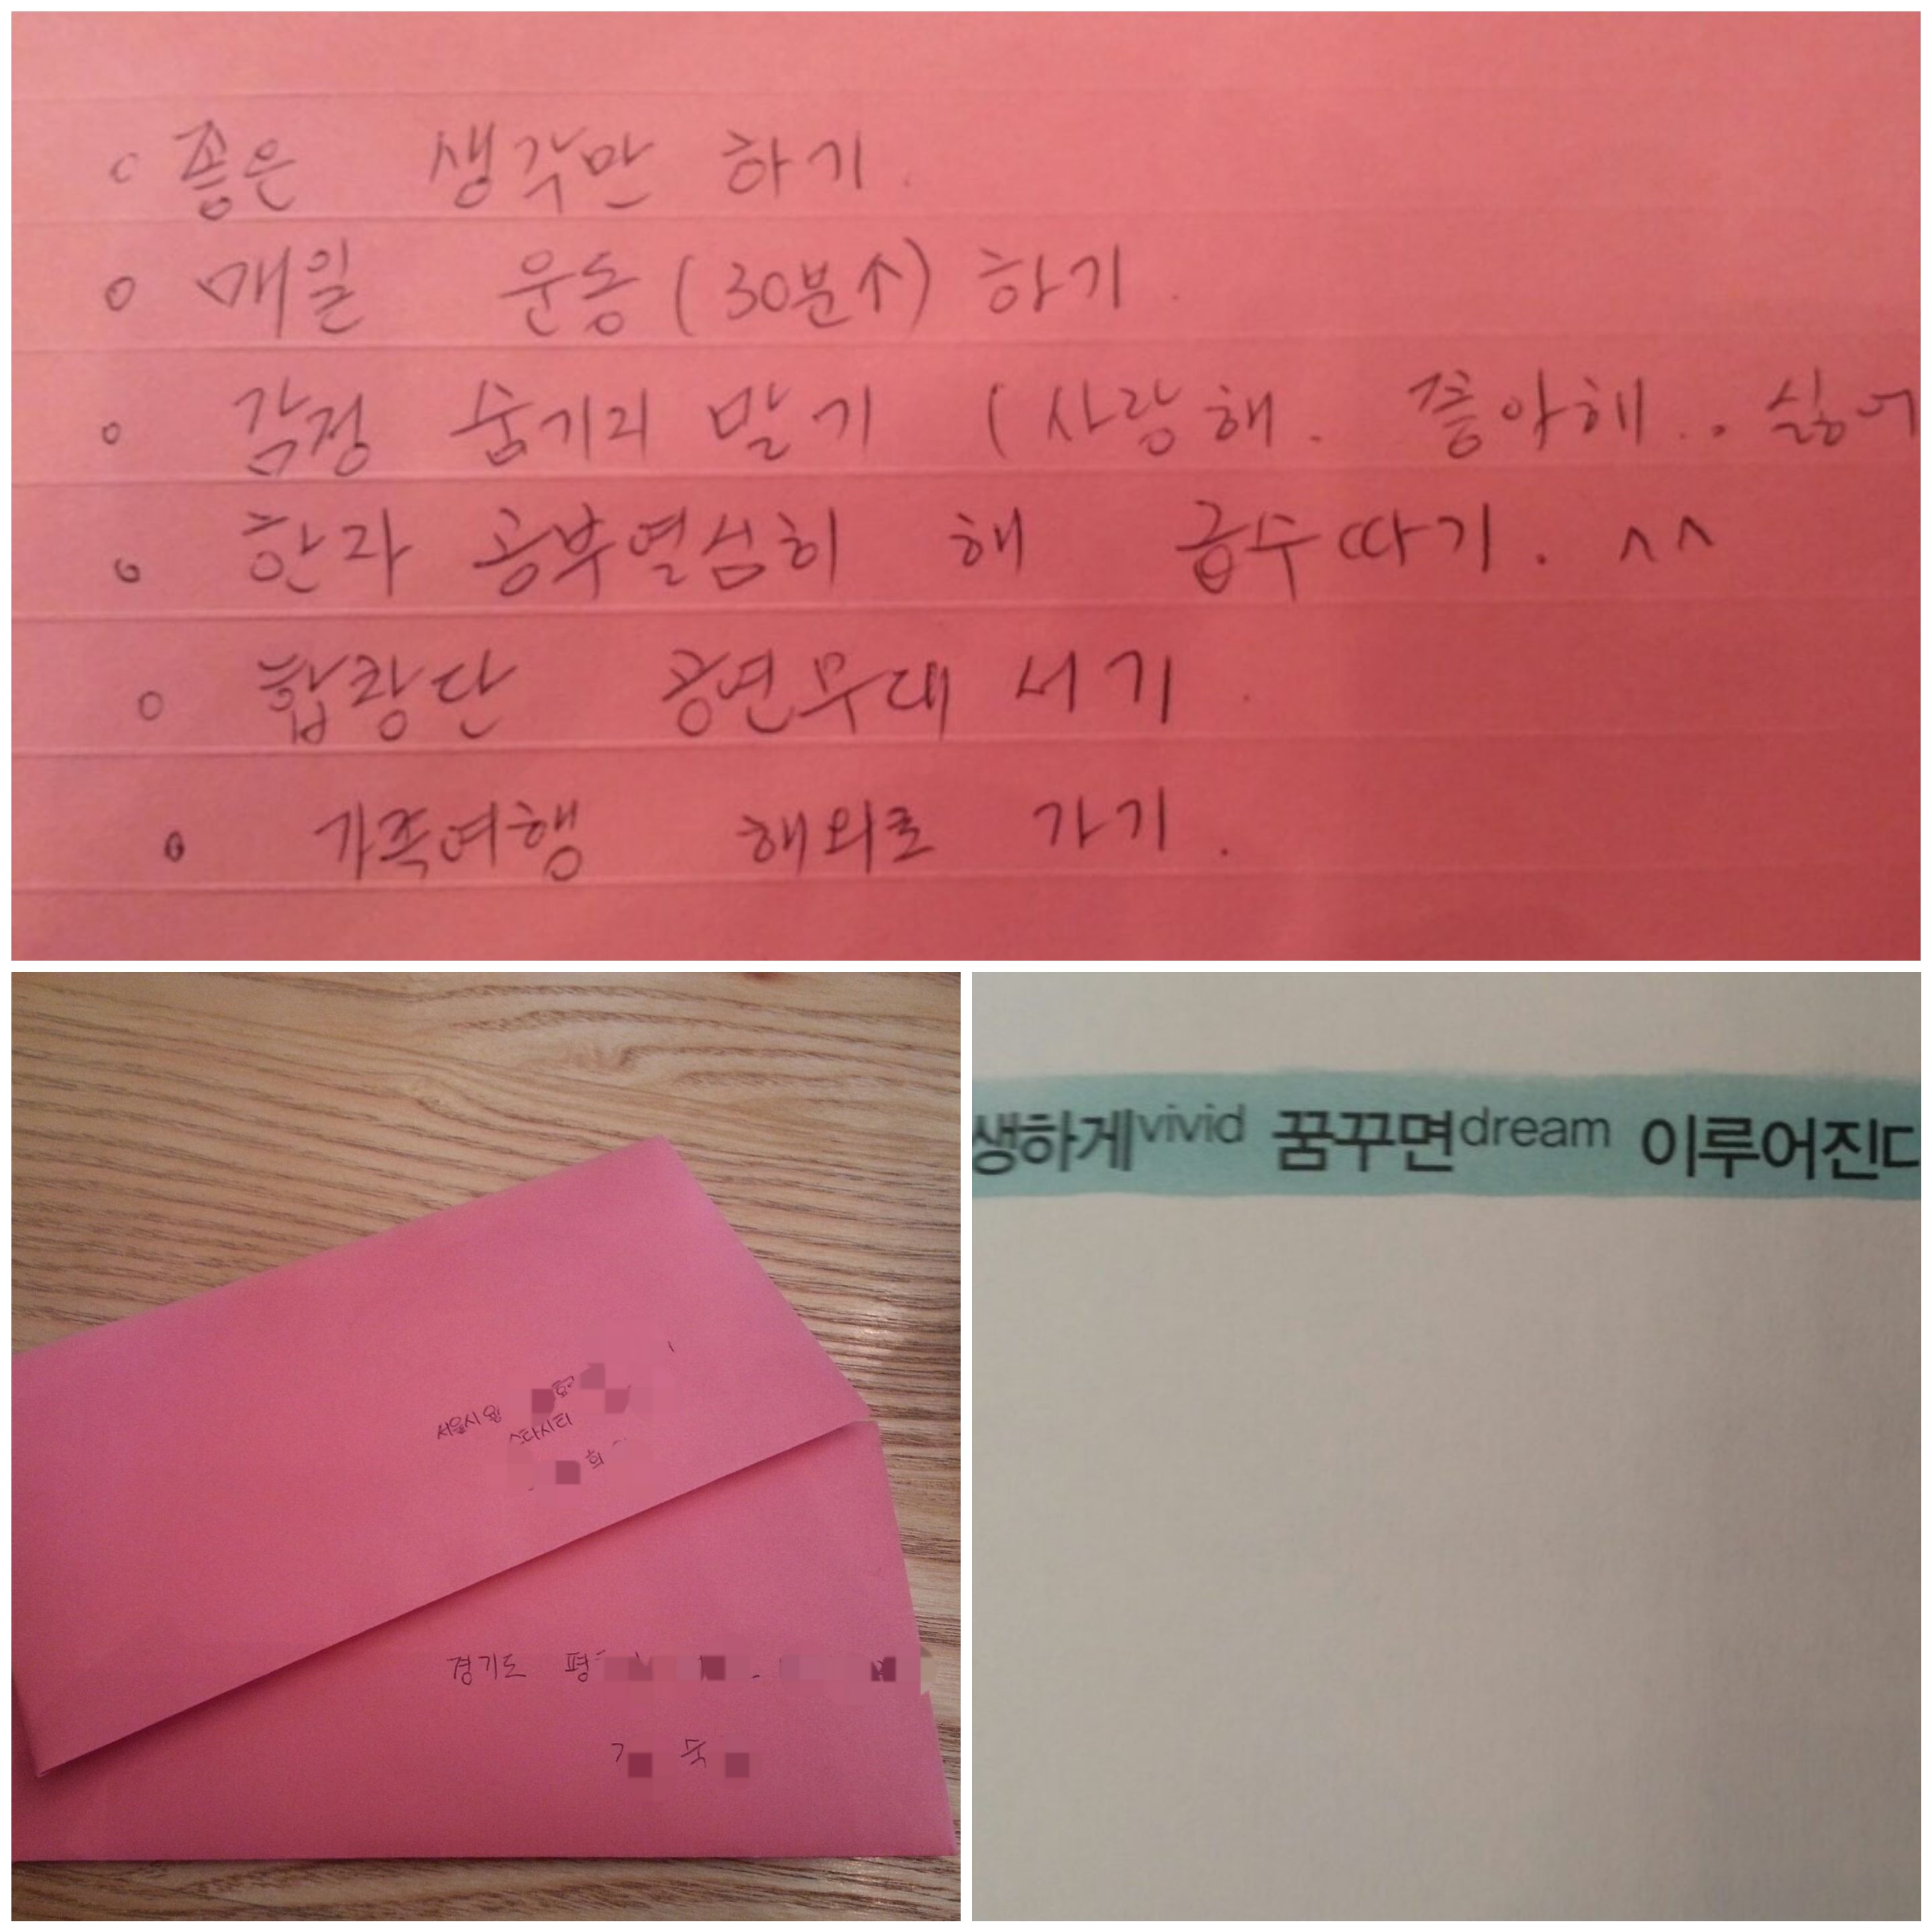 ○ 좋은 생각만 하기.
○ 매일 운동(30분↑) 하기.
○ 감정 숨기지 말기 (사랑해. 좋아해.. 싫어
○ 한자 공부열심히 해 급수따기. ^^
○ 합창단 공연무대 서기.
○ 가족여행 해외로 가기.
서울시
스타시티
희
경기도 평
숙
생하게vivid 꿈꾸면dream 이루어진다